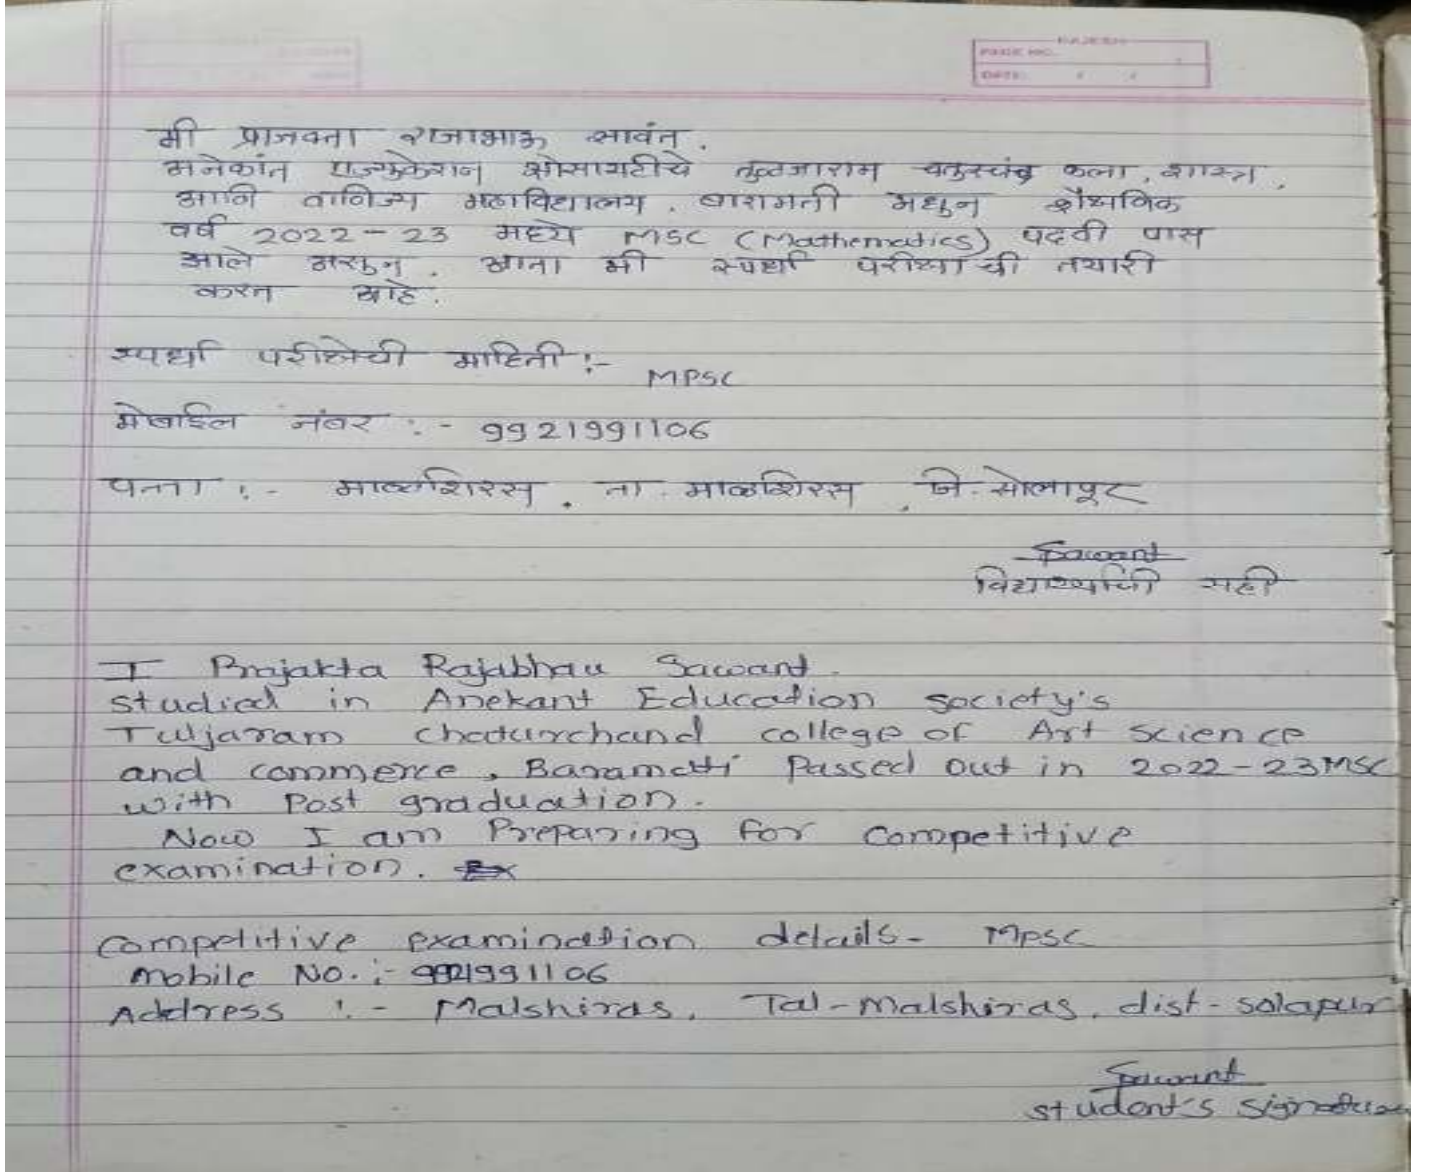 RAJESH
PAGE NO.
DATE: / /
मी प्राजक्ता राजाभाऊ सावंत.
अनेकांत एज्युकेशन सोसायटीचे तुळजाराम चतुरचंद कला, शास्त्र,
आणि वाणिज्य महाविद्यालय, बारामती मधुन शैक्षणिक
वर्ष 2022-23 मध्ये MSC (Mathematics) पदवी पास
झाले असुन. आता मी स्पर्धा परीक्षांची तयारी
करत आहे.
स्पर्धा परीक्षेची माहिती :- MPSC
मोबाईल नंबर :- 9921991106
पत्ता :- माळशिरस, ता. माळशिरस, जि. सोलापूर
Sawant
विद्यार्थ्यांची सही
I Prajakta Rajabhau Sawant.
studied in Anekant Education society's
Tuljaram chaturchand college of Art science
and commerce, Baramati Passed out in 2022-23 MSC
with Post graduation.
Now I am Preparing for competitive
examination.
competitive examination details- MPSC
Mobile No. :- 9921991106
Address :- Malshiras, Tal-Malshiras, dist-solapur
Sawant
student's signature